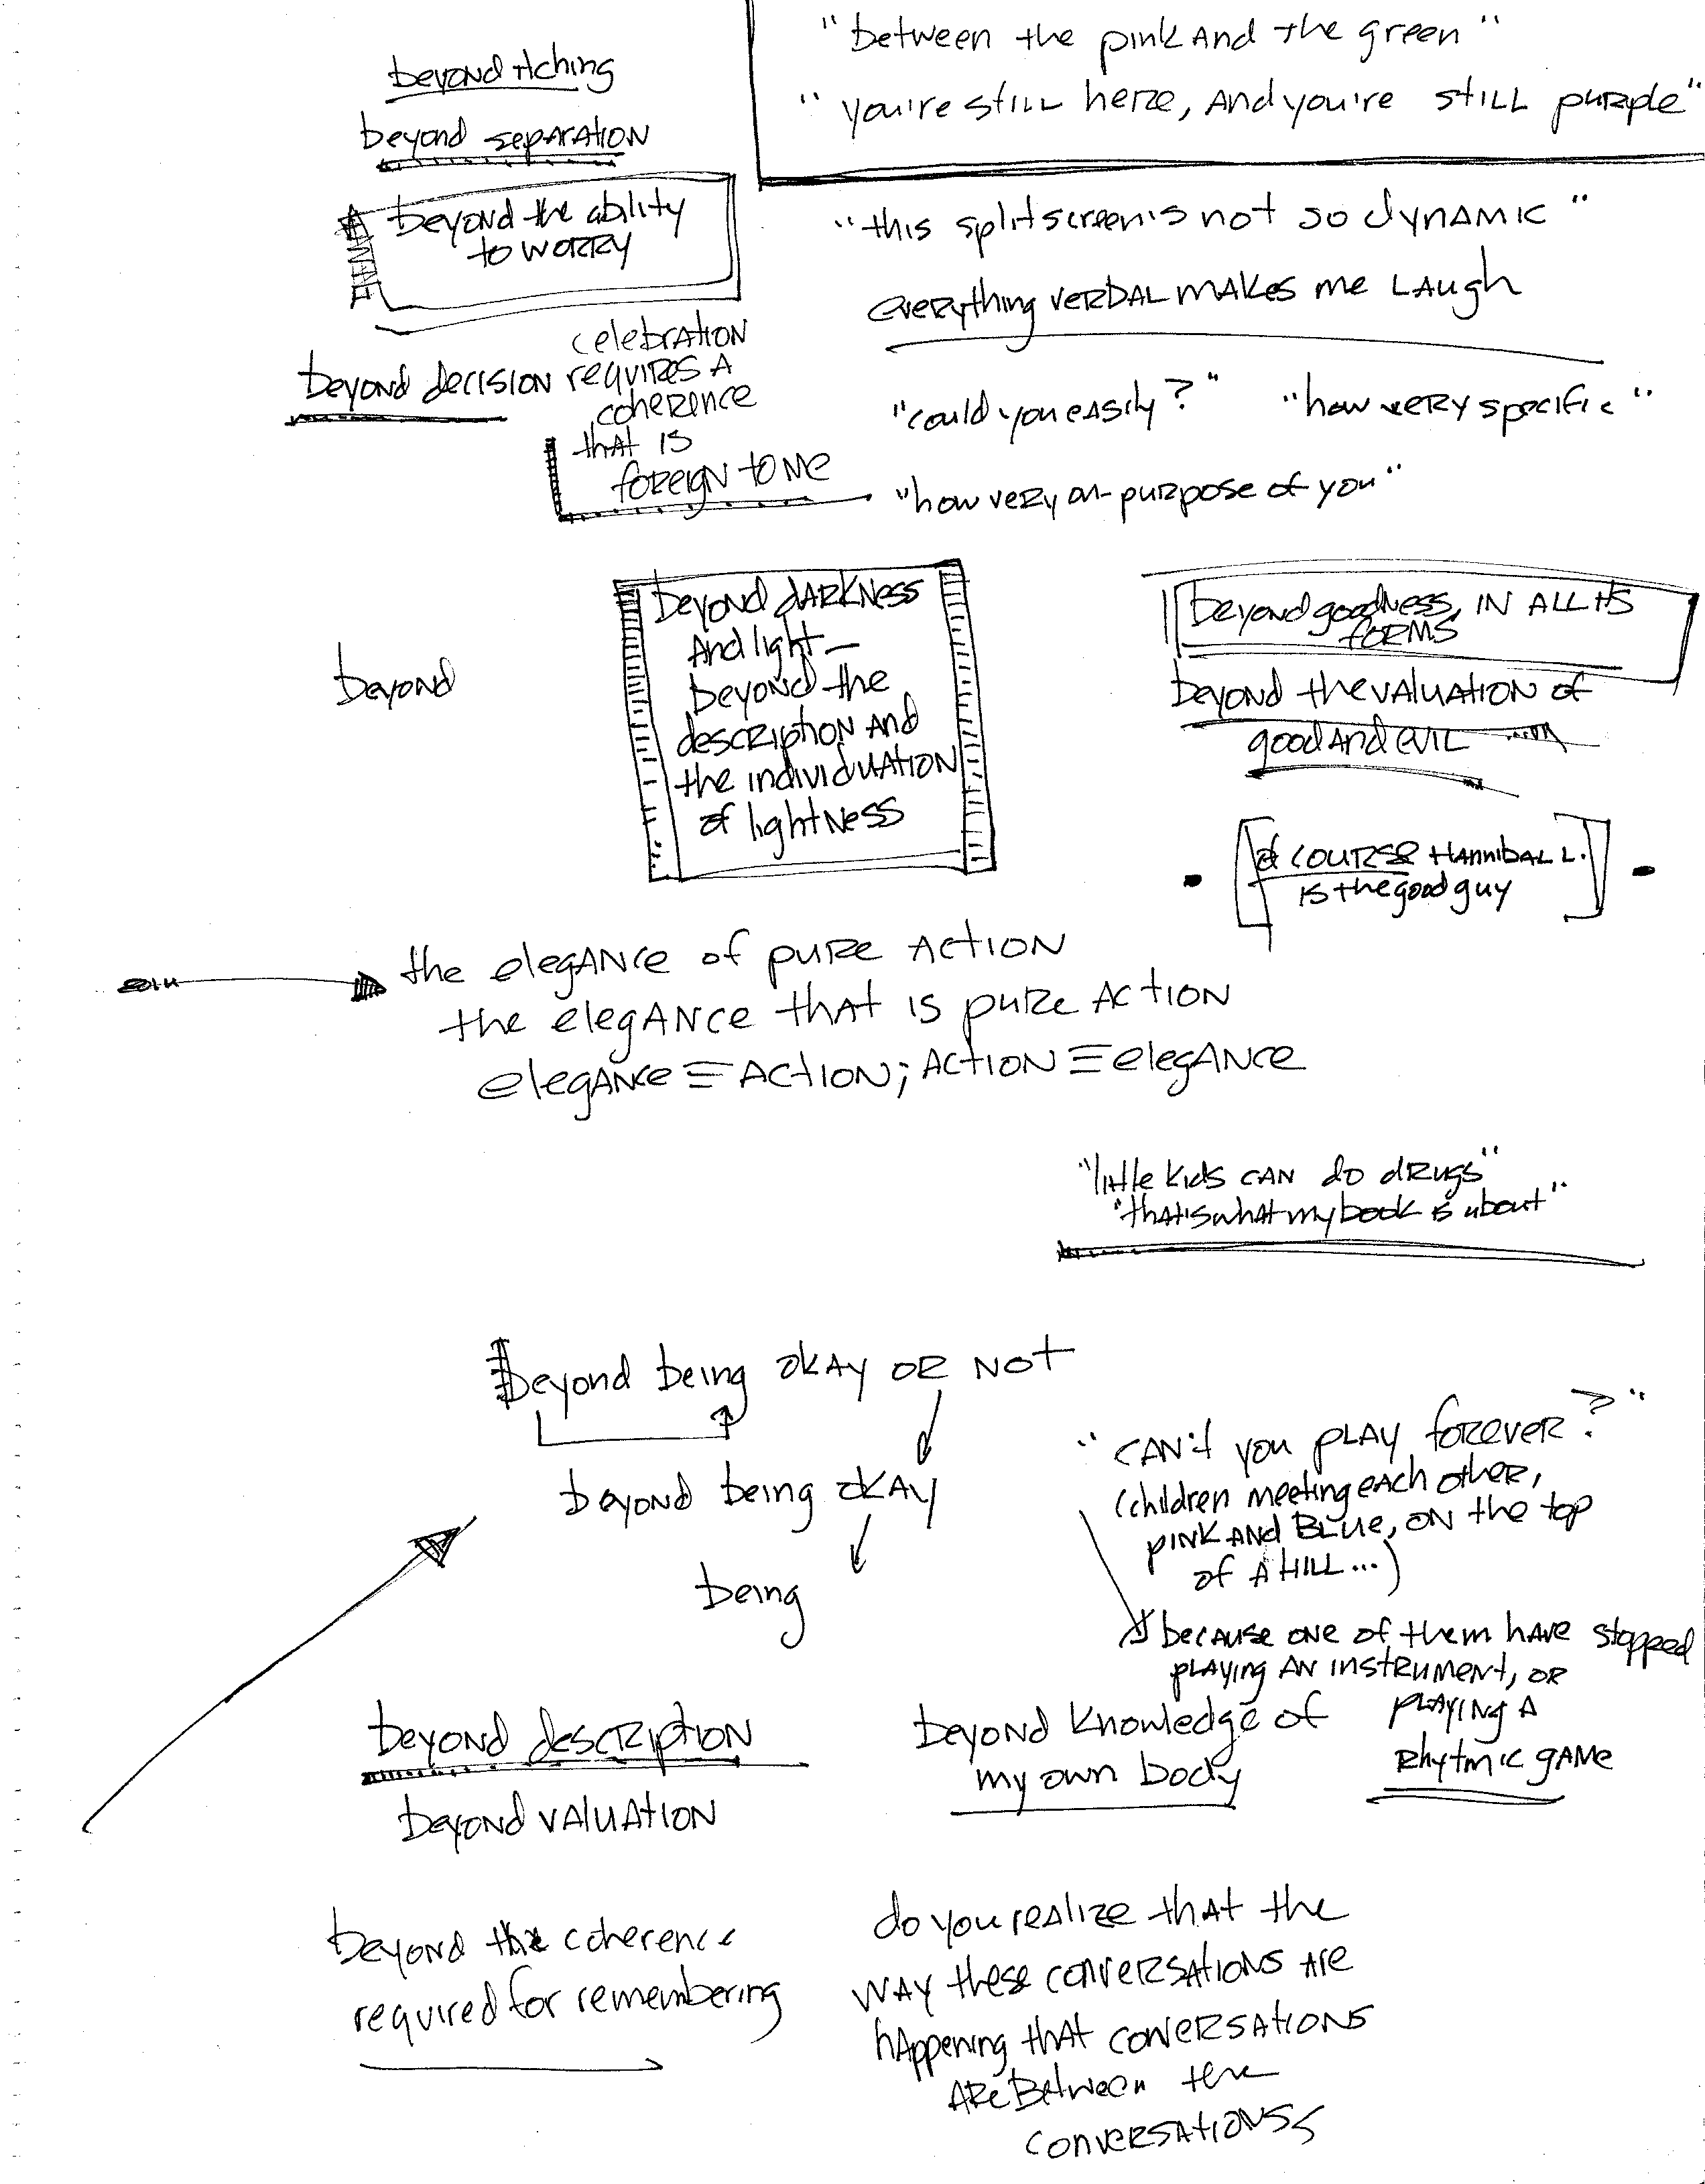 "between the pink and the green"
"you're still here, and you're still purple"
beyond itching
beyond separation
beyond the ability
to worry
"this splitscreen's not so dynamic"
everything verbal makes me laugh
celebration
requires a
coherence
that is
foreign to me
beyond decision
"could you easily?" "how very specific"
"how very on-purpose of you"
beyond
beyond darkness
and light—
beyond the
description and
the individuation
of lightness
beyond goodness, in all its
forms
beyond the valuation of
good and evil
[of course Hannibal L.
is the good guy]
the elegance of pure action
the elegance that is pure action
elegance ≡ action; action ≡ elegance
"little kids can do drugs"
"that's what my book is about"
beyond being okay or not
beyond being okay
being
"can't you play forever?"
(children meeting each other,
pink and blue, on the top
of a hill...)
because one of them have stopped
playing an instrument, or
playing a
rhytmic game
beyond description
beyond valuation
beyond knowledge of
my own body
beyond the coherence
required for remembering
do you realize that the
way these conversations are
happening that conversations
are between the
conversations